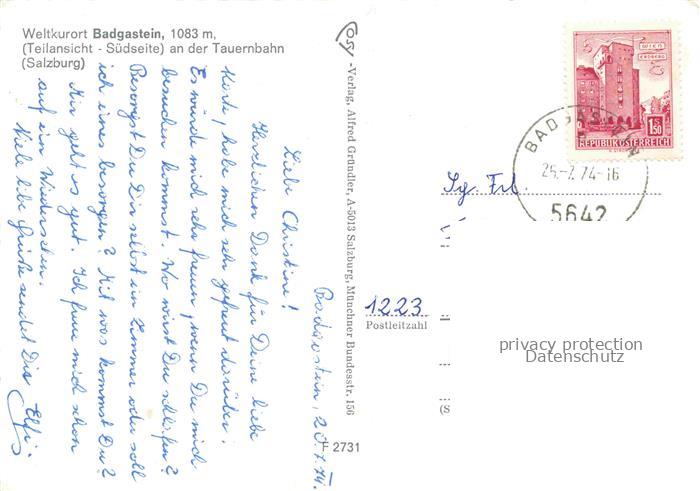 Weltkurort Badgastein, 1083 m,
(Teilansicht - Südseite) an der Tauernbahn
(Salzburg)
Badgastein, 25.7.74.
Liebe Christine!
Herzlichen Dank für Deine liebe
Karte, habe mich sehr gefreut darüber.
Es würde mich sehr freuen, wenn Du mich
besuchen kommst. Wo wirst Du schlafen?
Besorgst Du Dir selbst ein Zimmer oder soll
ich eines besorgen? Mit was kommst Du?
Mir geht es gut. Ich freue mich schon
auf ein Wiedersehen.
Viele liebe Grüße sendet Dir Elfi.
-Verlag, Alfred Gründler, A-5013 Salzburg, Münchner Bundesstr. 156
F 2731
WIEN
ERDBERG
1.50
REPUBLIK ÖSTERREICH
BADGASTEIN
25.-7.74-16
5642
Sg. Frl.
1223
Postleitzahl
(S
privacy protection
Datenschutz